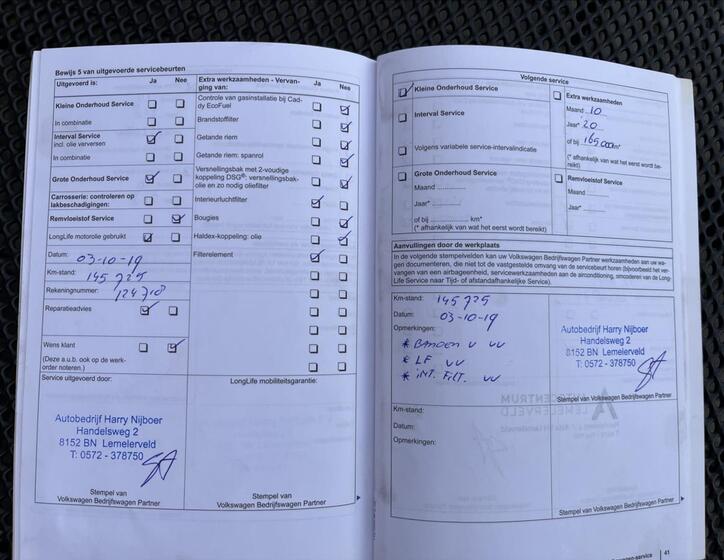 Bewijs 5 van uitgevoerde servicebeurten
Uitgevoerd is: Ja Nee
Kleine Onderhoud Service
In combinatie
Interval Service
incl. olie verversen
In combinatie
Grote Onderhoud Service
Carrosserie: controleren op
lakbeschadigingen:
Remvloeistof Service
LongLife motorolie gebruikt
Datum: 03-10-19
Km-stand: 145725
Rekeningnummer:
Reparatieadvies
Wens klant
(Deze a.u.b. ook op de werk-
order noteren.)
Service uitgevoerd door:
Autobedrijf Harry Nijboer
Handelsweg 2
8152 BN Lemelerveld
T: 0572 - 378750
Stempel van
Volkswagen Bedrijfswagen Partner
Extra werkzaamheden - Vervan-
ging van: Ja Nee
Controle van gasinstallatie bij Cad-
dy EcoFuel
Brandstoffilter
Getande riem
Getande riem: spanrol
Versnellingsbak met 2-voudige
koppeling DSG®: versnellingsbak-
olie en zo nodig oliefilter
Interieurluchtfilter
Bougies
Haldex-koppeling: olie
Filterelement
LongLife mobiliteitsgarantie:
Stempel van
Volkswagen Bedrijfswagen Partner
Volgende service
Kleine Onderhoud Service
Interval Service
Volgens variabele service-intervalindicatie
Grote Onderhoud Service
Maand ............
Jaar* ............
of bij ............ km*
(* afhankelijk van wat het eerst wordt bereikt)
Extra werkzaamheden
Maand 10
Jaar* 20
of bij 165.000 km*
(* afhankelijk van wat het eerst wordt be-
reikt)
Remvloeistof Service
Maand ............
Jaar* ............
Aanvullingen door de werkplaats
In de volgende stempelvelden kan uw Volkswagen Bedrijfswagen Partner werkzaamheden aan uw wa-
gen documenteren, die niet tot de vastgestelde omvang van de servicebeurt horen (bijvoorbeeld het ver-
vangen van een airbageenheid, servicewerkzaamheden aan de airconditioning, omcoderen van de Long-
Life Service naar Tijd- of afstandafhankelijke Service).
Km-stand: 145725
Datum: 03-10-19
Opmerkingen:
* BANDEN V VV
* LF VV
* INT. FILT. VV
Autobedrijf Harry Nijboer
Handelsweg 2
8152 BN Lemelerveld
T: 0572 - 378750
Stempel van
Volkswagen Bedrijfswagen Partner
Km-stand:
Datum:
Opmerkingen:
Stempel van
Volkswagen Bedrijfswagen Partner
41